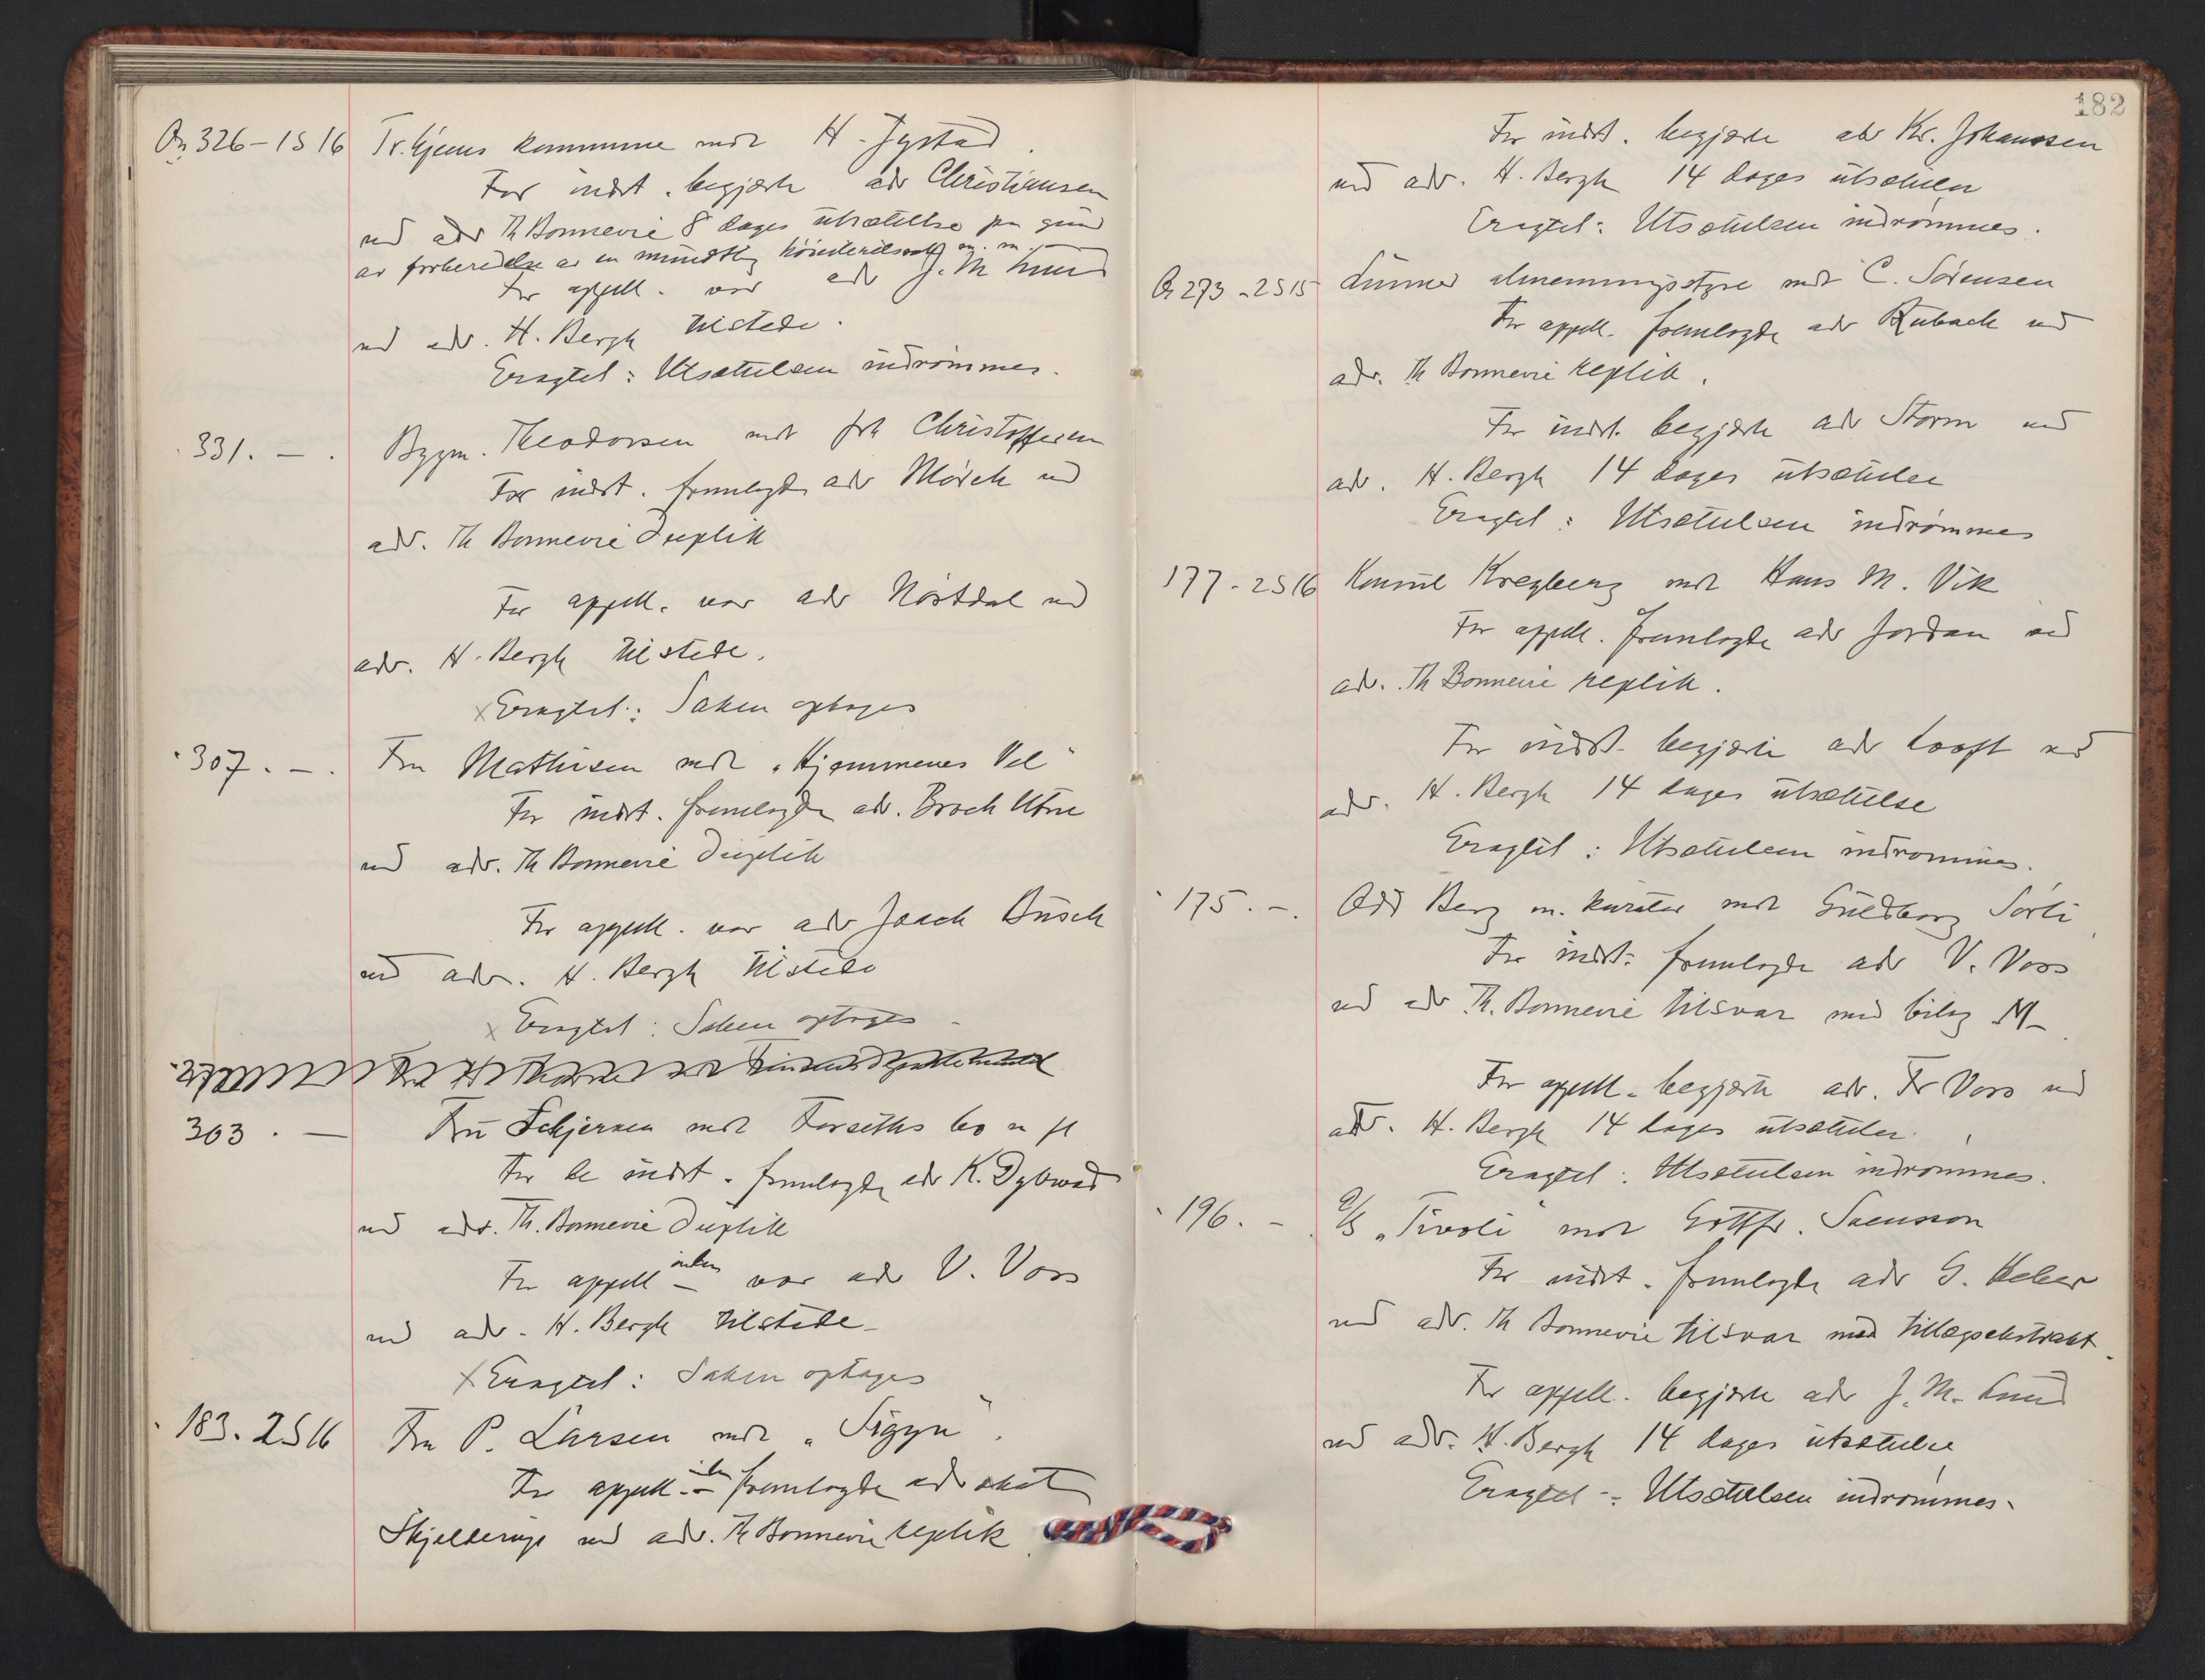 Or 326 - 1 S 16 Tr.hjems kommune mot H. Jystad.
For indst. begjærte adv Christiansen
ved adv Th Bonnevie 8 dages utsættelse paa grund
av forberedelse av en mundtlig høiesteretssak m. m.
For appell. var adv J. M. Lund
ved adv. H. Bergh tilstede.
Eragtet: Utsættelsen indrømmes.
331. - . Bygm. Theodorsen mot frk Christoffersen
For indst. fremlagde adv Mørch ved
adv. Th Bonnevie duplik
For appell. var adv Nøstdal ved
adv. H. Bergh tilstede.
x Eragtet: Saken optages
307. - . Fru Mathisen mot "Hjemmenes Vel"
For indst. fremlagde adv. Broch Utne
ved adv. Th Bonnevie duplik
For appell. var adv Joach Busch
ved adv. H. Bergh tilstede
x Eragtet: Saken optages -
Finansdepartementet
303. - Fru Schjernen mot Forseths bo m fl
For de indst. fremlagde adv K. Dybwad
ved adv. Th. Bonnevie duplik
For appell-inden var adv V. Voss
ved adv. H. Bergh tilstede -
x Eragtet: Saken optages
183. 2 S 16 Fru P. Larsen mot "Sigyn".
For appell.-inden fremlagde advokat
Skjelderup ved adv. Th Bonnevie replik
182
For indst. begjærte adv Kr. Johanssen
ved adv. H. Bergh 14 dages utsættelse
Eragtet: Utsættelsen indrømmes.
Or 273 - 2 S 15 Lunner almenningsstyre mot C. Sørensen
For appell. fremlagde adv Rubach ved
adv. Th Bonnevie replik.
For indst. begjærte adv Storm ved
adv. H. Bergh 14 dages utsættelse
Eragtet: Utsættelsen indrømmes
177 - 2 S 16 Konsul Kreyberg mot Hans M. Vik
For appell. fremlagde adv Jordan ved
adv. Th Bonnevie replik.
For indst. begjærte adv Looft ved
adv. H. Bergh 14 dages utsættelse
Eragtet: Utsættelsen indrømmes.
175. - . Odd Berg m. kurator mot Guldborg Sørli
For indst: fremlagde adv V. Voss
ved adv Th. Bonnevie tilsvar med bilag M-
For appell. begjærte adv. Fr Voss ved
adv. H. Bergh 14 dages utsættelse.
Eragtet: Utsættelsen indrømmes.
196. - A/S "Tivoli" mot Gottfr. Svensson
For indst. fremlagde adv G. Heber
ved adv. Th Bonnevie tilsvar med tillægsekstrakt.
For appell. begjærte adv J. M. Lund
ved adv. H. Bergh 14 dages utsættelse
Eragtet: Utsættelsen indrømmes.